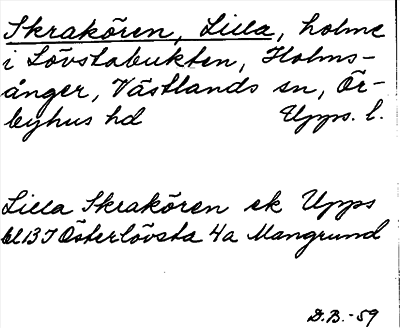 Skrakören, Lilla, holme
i Lövstabukten, Holms-
ånger, Västlands sn, Ör-
byhus hd Upps. l.
Lilla Skrakören ek Upps
bl 13 I Österlövsta 4a Mangrund
D.B.-59